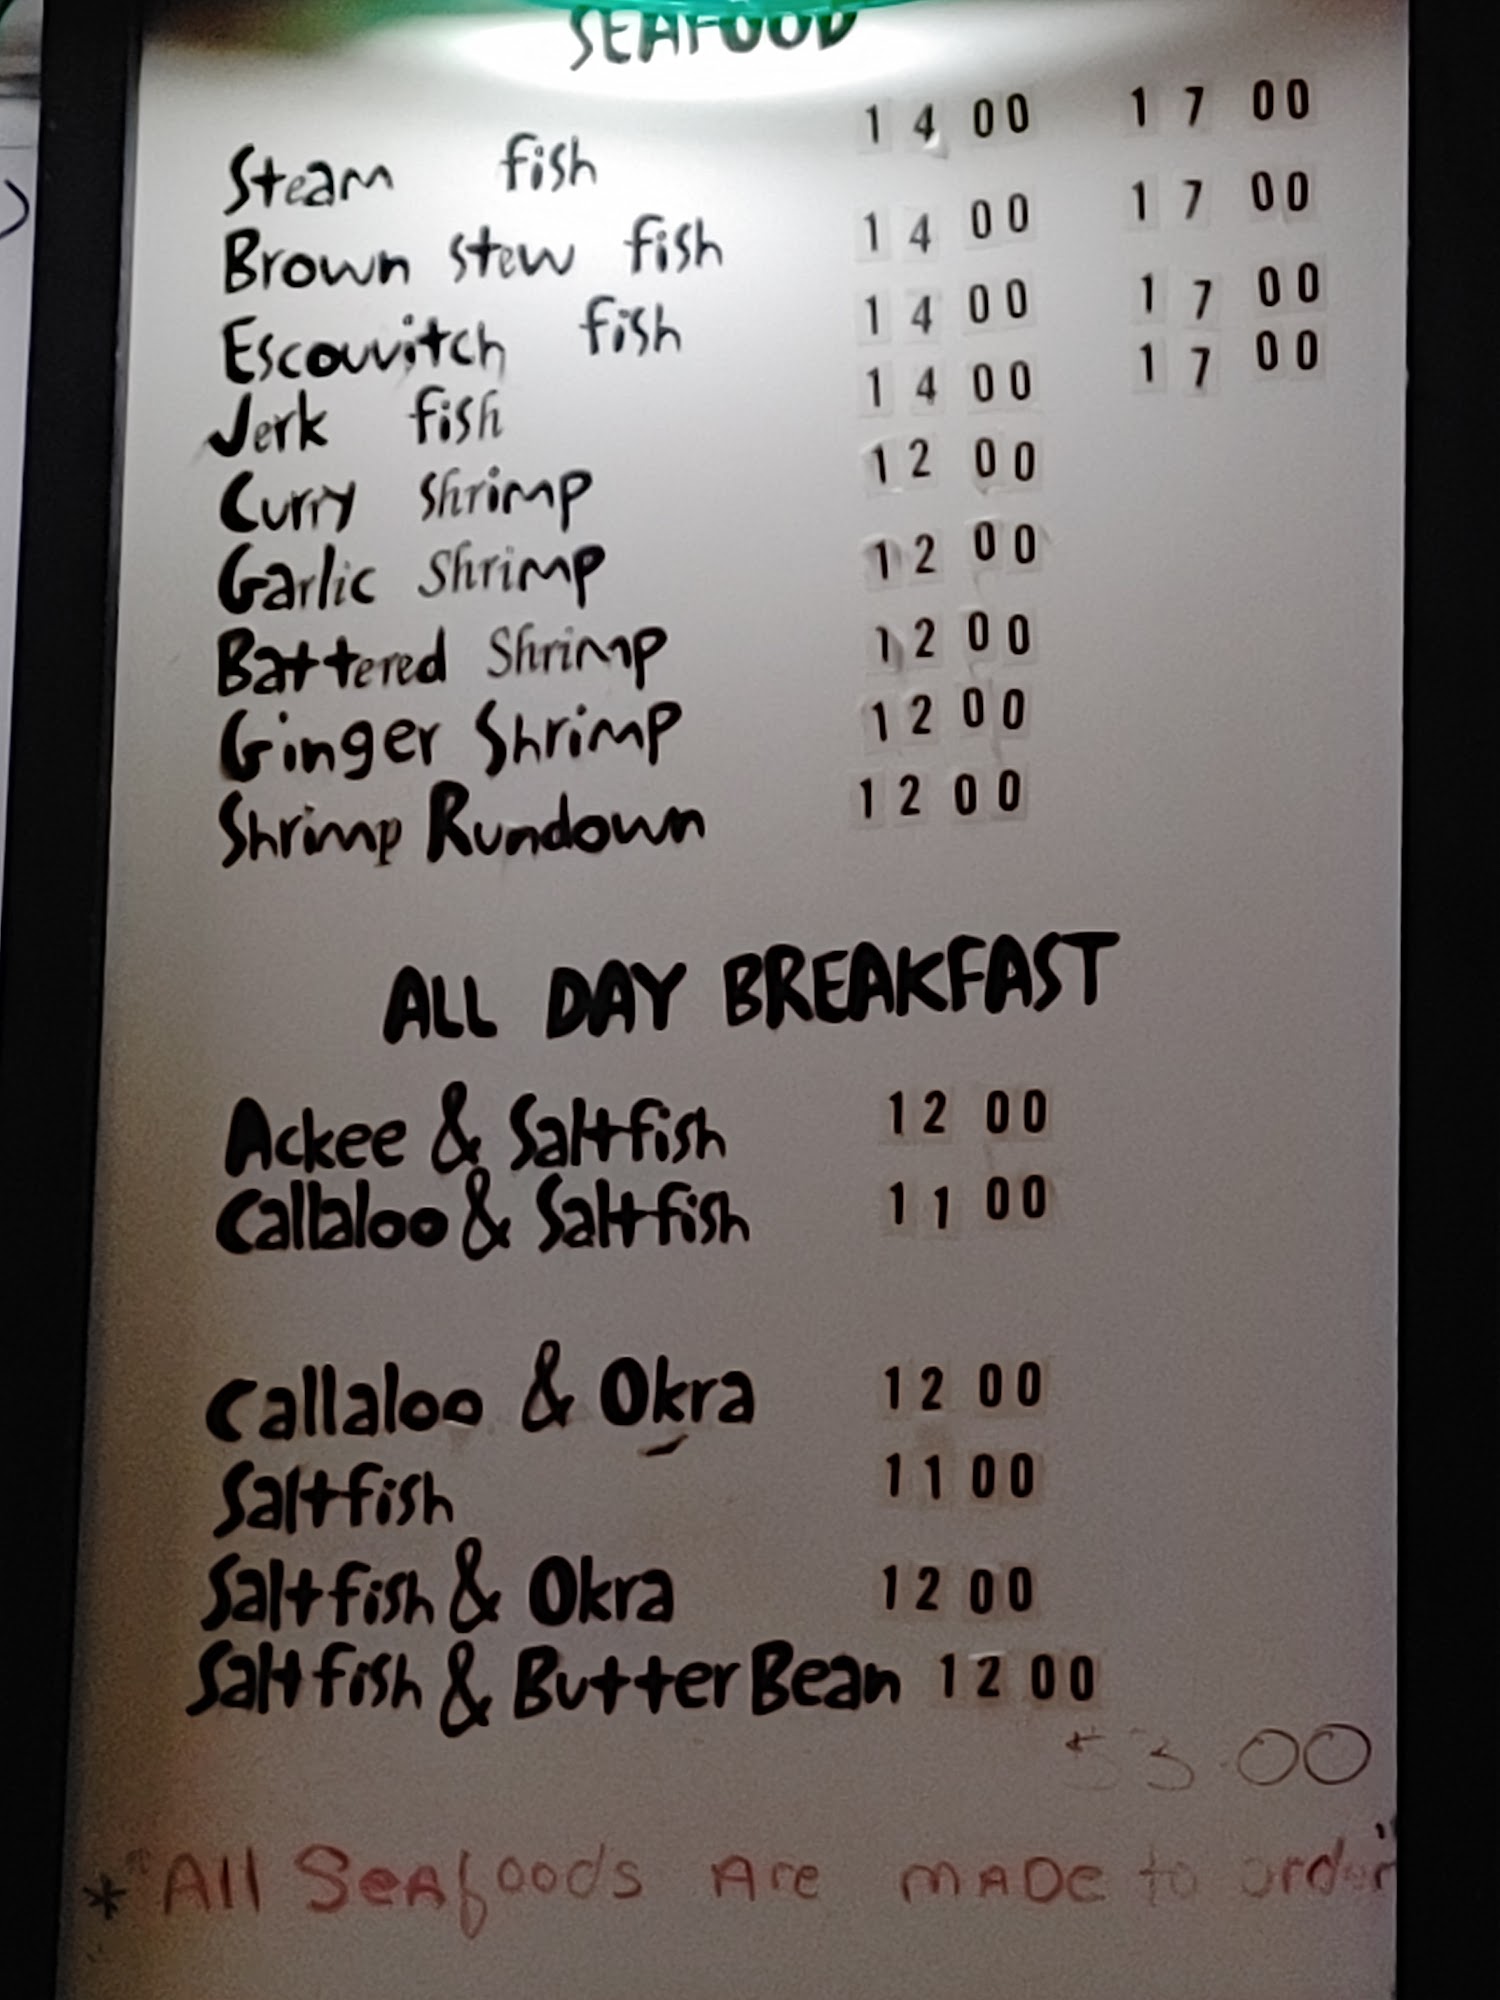 SEAFOOD
Steam fish 14 00 17 00
Brown stew fish 14 00 17 00
Escovvitch fish 14 00 17 00
Jerk fish 14 00 17 00
Curry Shrimp 12 00
Garlic Shrimp 12 00
Battered Shrimp 12 00
Ginger Shrimp 12 00
Shrimp Rundown 12 00
ALL DAY BREAKFAST
Ackee & Saltfish 12 00
Callaloo & Saltfish 11 00
Callaloo & Okra 12 00
Saltfish 11 00
Saltfish & Okra 12 00
Saltfish & Butter Bean 12 00
$3.00
* "All Seafoods Are MADe to order"